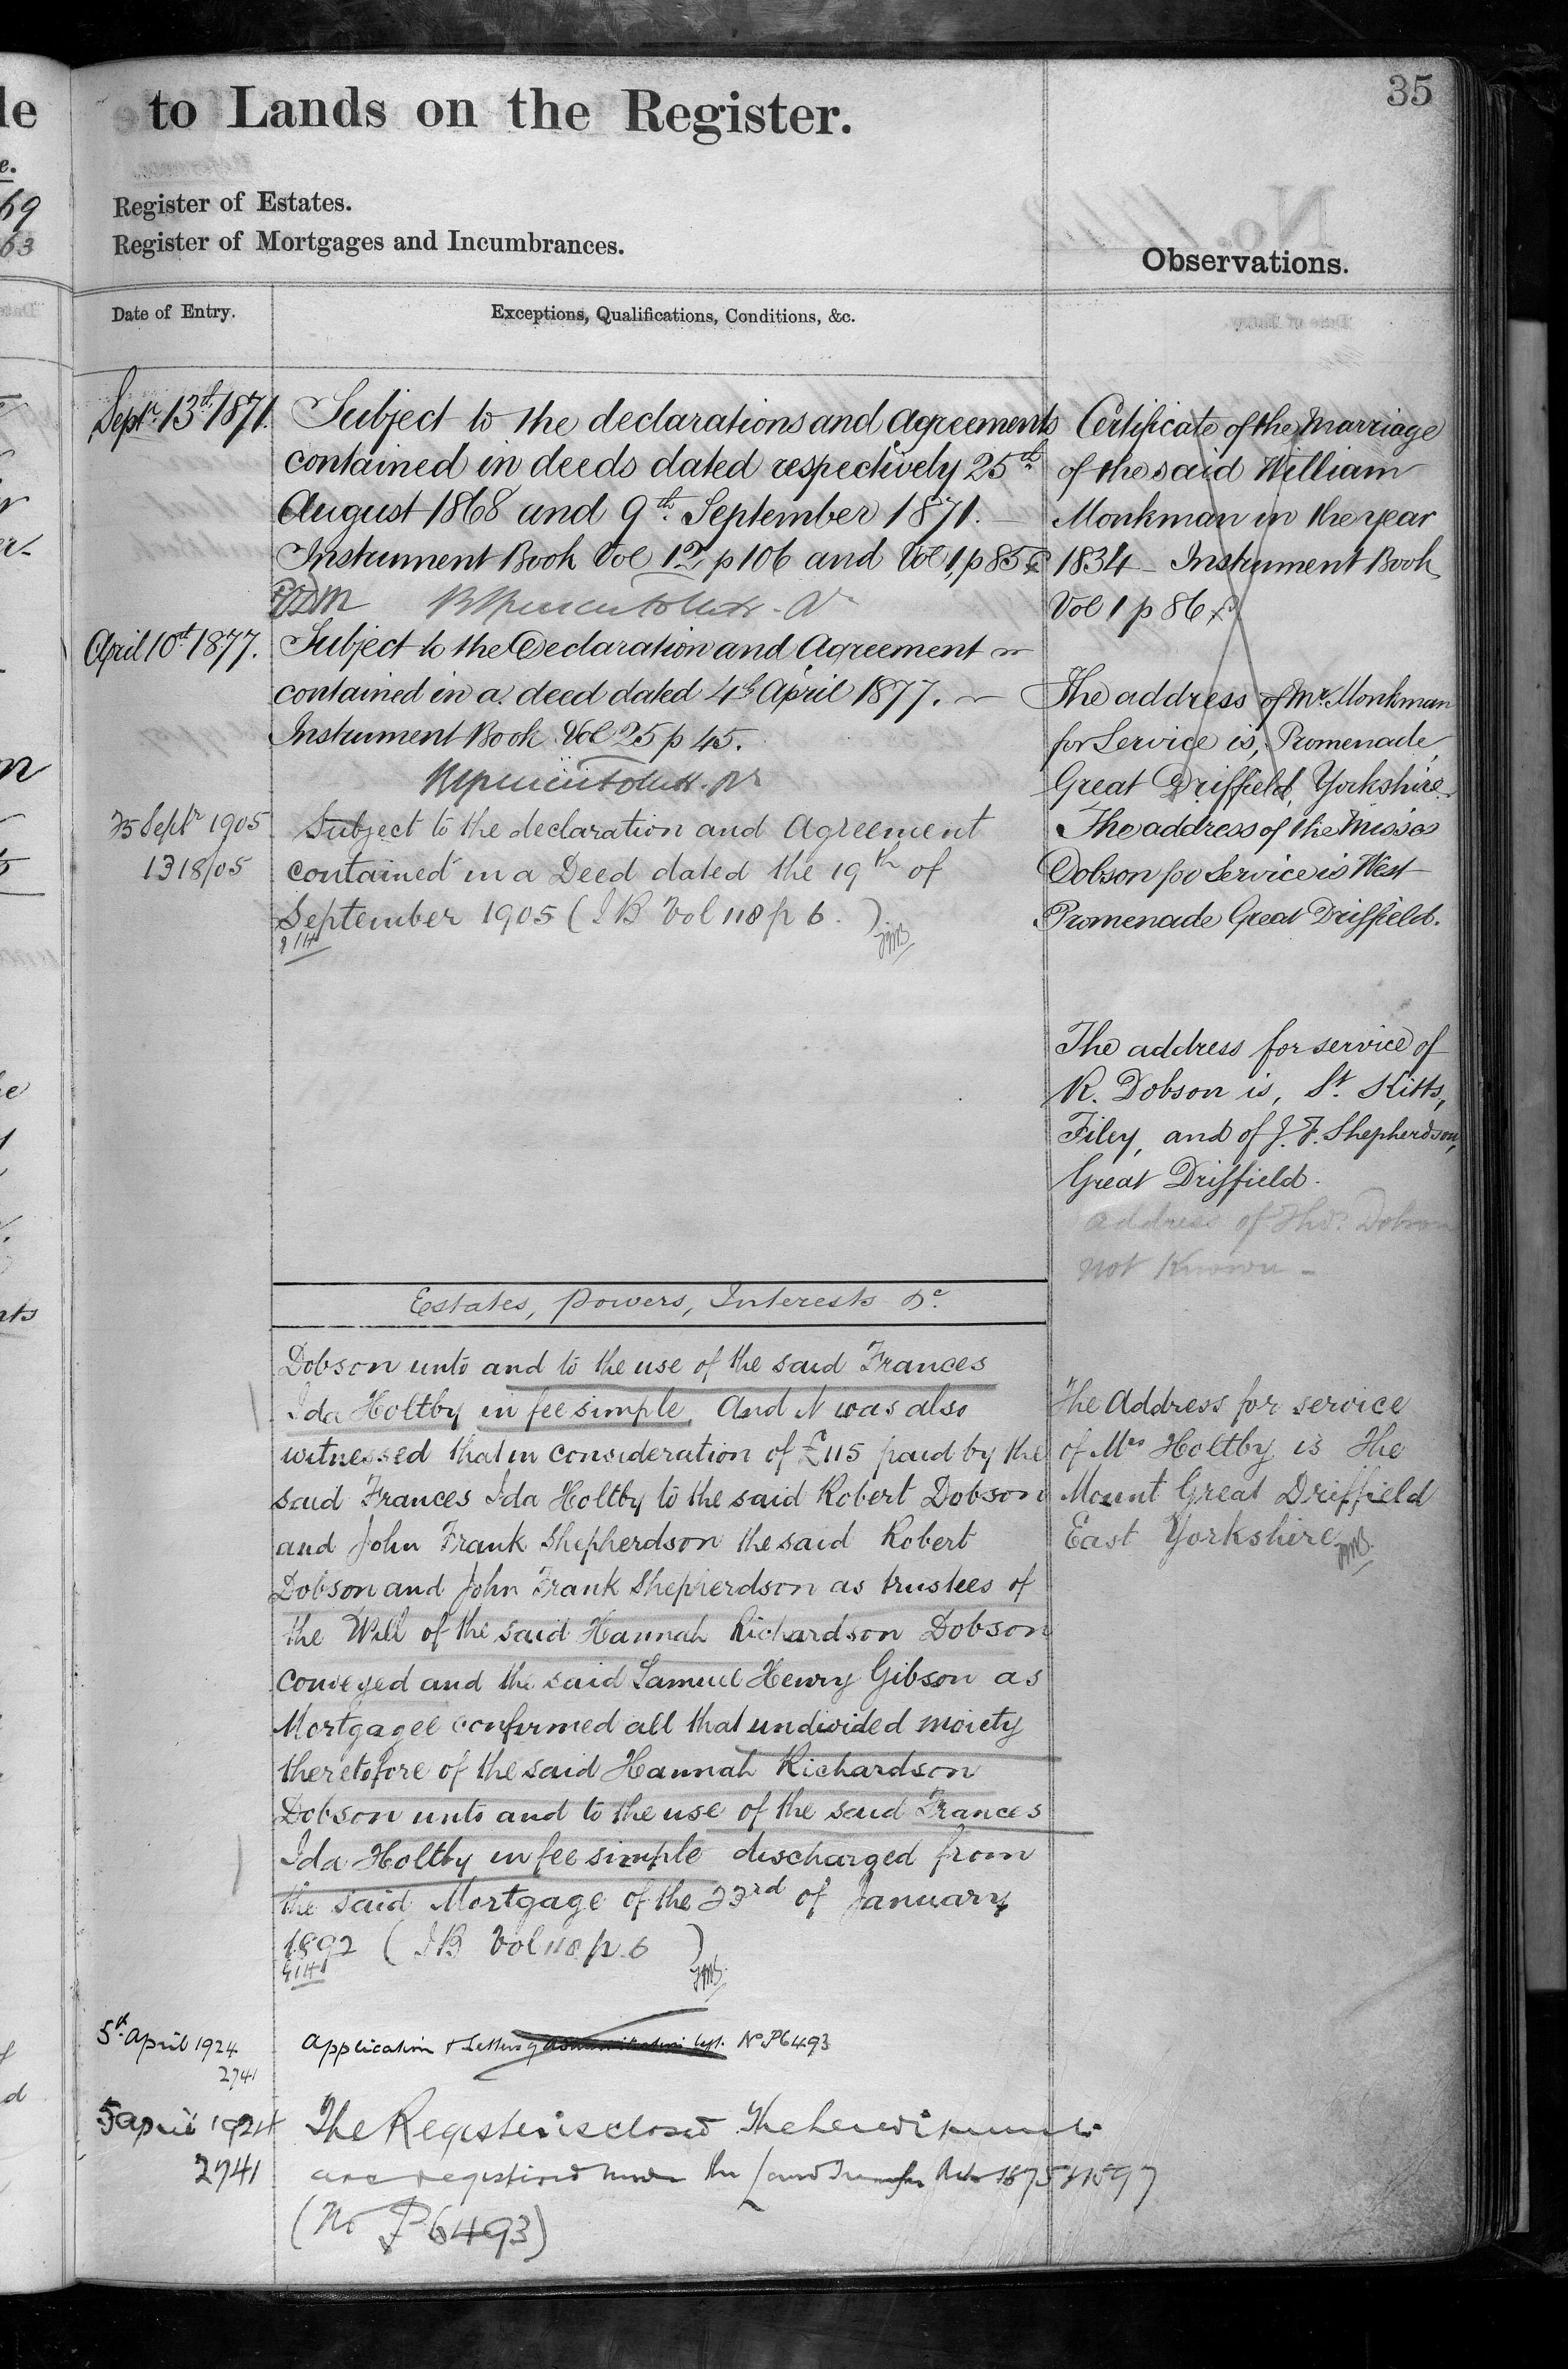 35
to Lands on the Register.
Register of Estates.
Register of Mortgages and Incumbrances.
Observations.
Date of Entry.
Exceptions, Qualifications, Conditions, &c.
Septr. 13th 1871.
Subject to the declarations and Agreements
contained in deeds dated respectively 25th
August 1868 and 9th September 1871.
Instrument Book Vol 12, p 106 and Vol 1, p 85
April 10th 1877.
Subject to the Declaration and Agreement
contained in a deed dated 4th April 1877.
Instrument Book Vol 25 p 45.
25 Septr 1905
1318/05
Subject to the declaration and Agreement
contained in a Deed dated the 19th of
September 1905 (I B Vol 118 p 6.)
Estates, Powers, Interests &c.
Dobson unto and to the use of the said Frances
Ida Holtby in fee simple. And it was also
witnessed that in consideration of £115 paid by the
said Frances Ida Holtby to the said Robert Dobson
and John Frank Shepherdson the said Robert
Dobson and John Frank Shepherdson as trustees of
the Will of the said Hannah Richardson Dobson
conveyed and the said Samuel Henry Gibson as
Mortgagee confirmed all that undivided moiety
theretofore of the said Hannah Richardson
Dobson unto and to the use of the said Frances
Ida Holtby in fee simple discharged from
the said Mortgage of the 23rd of January
1892 (I B Vol 118 p. 6)
5th April 1924
2741
Application & Letters of Administration No P6493
5 April 1924
2741
The Register is closed The hereditaments
are registered under the Land Transfer Acts 1875 & 1897
(No P 6493)
Certificate of the Marriage
of the said William
Monkman in the year
1834 - Instrument Book
Vol 1 p 86
The address of Mr. Monkman
for Service is, Promenade,
Great Driffield, Yorkshire.
The address of the Misses
Dobson for Service is West
Promenade Great Driffield.
The address for service of
R. Dobson is, St. Kitts,
Filey, and of J. F. Shepherdson,
Great Driffield.
address of Thos. Dobson
not known -
The Address for service
of Mrs Holtby is The
Mount Great Driffield
East Yorkshire